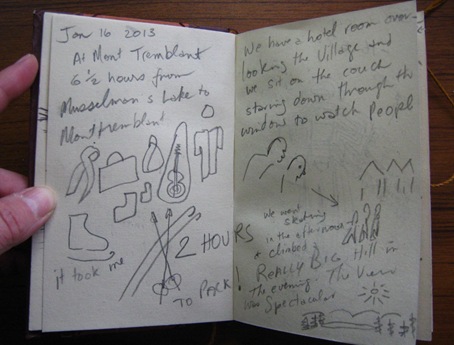 Jan 16 2013
At Mont Tremblant
6 1/2 hours from
Musselman s Lake to
Mont tremblant
it took me
2 HOURS
TO PACK!
We have a hotel room over-
looking the Village and
we sit on the couch
staring down through the
window to watch Peopl
we went
skating
in the afternoon
& climbed a
REALLY BIG Hill in
the evening. The View
was Spectacular